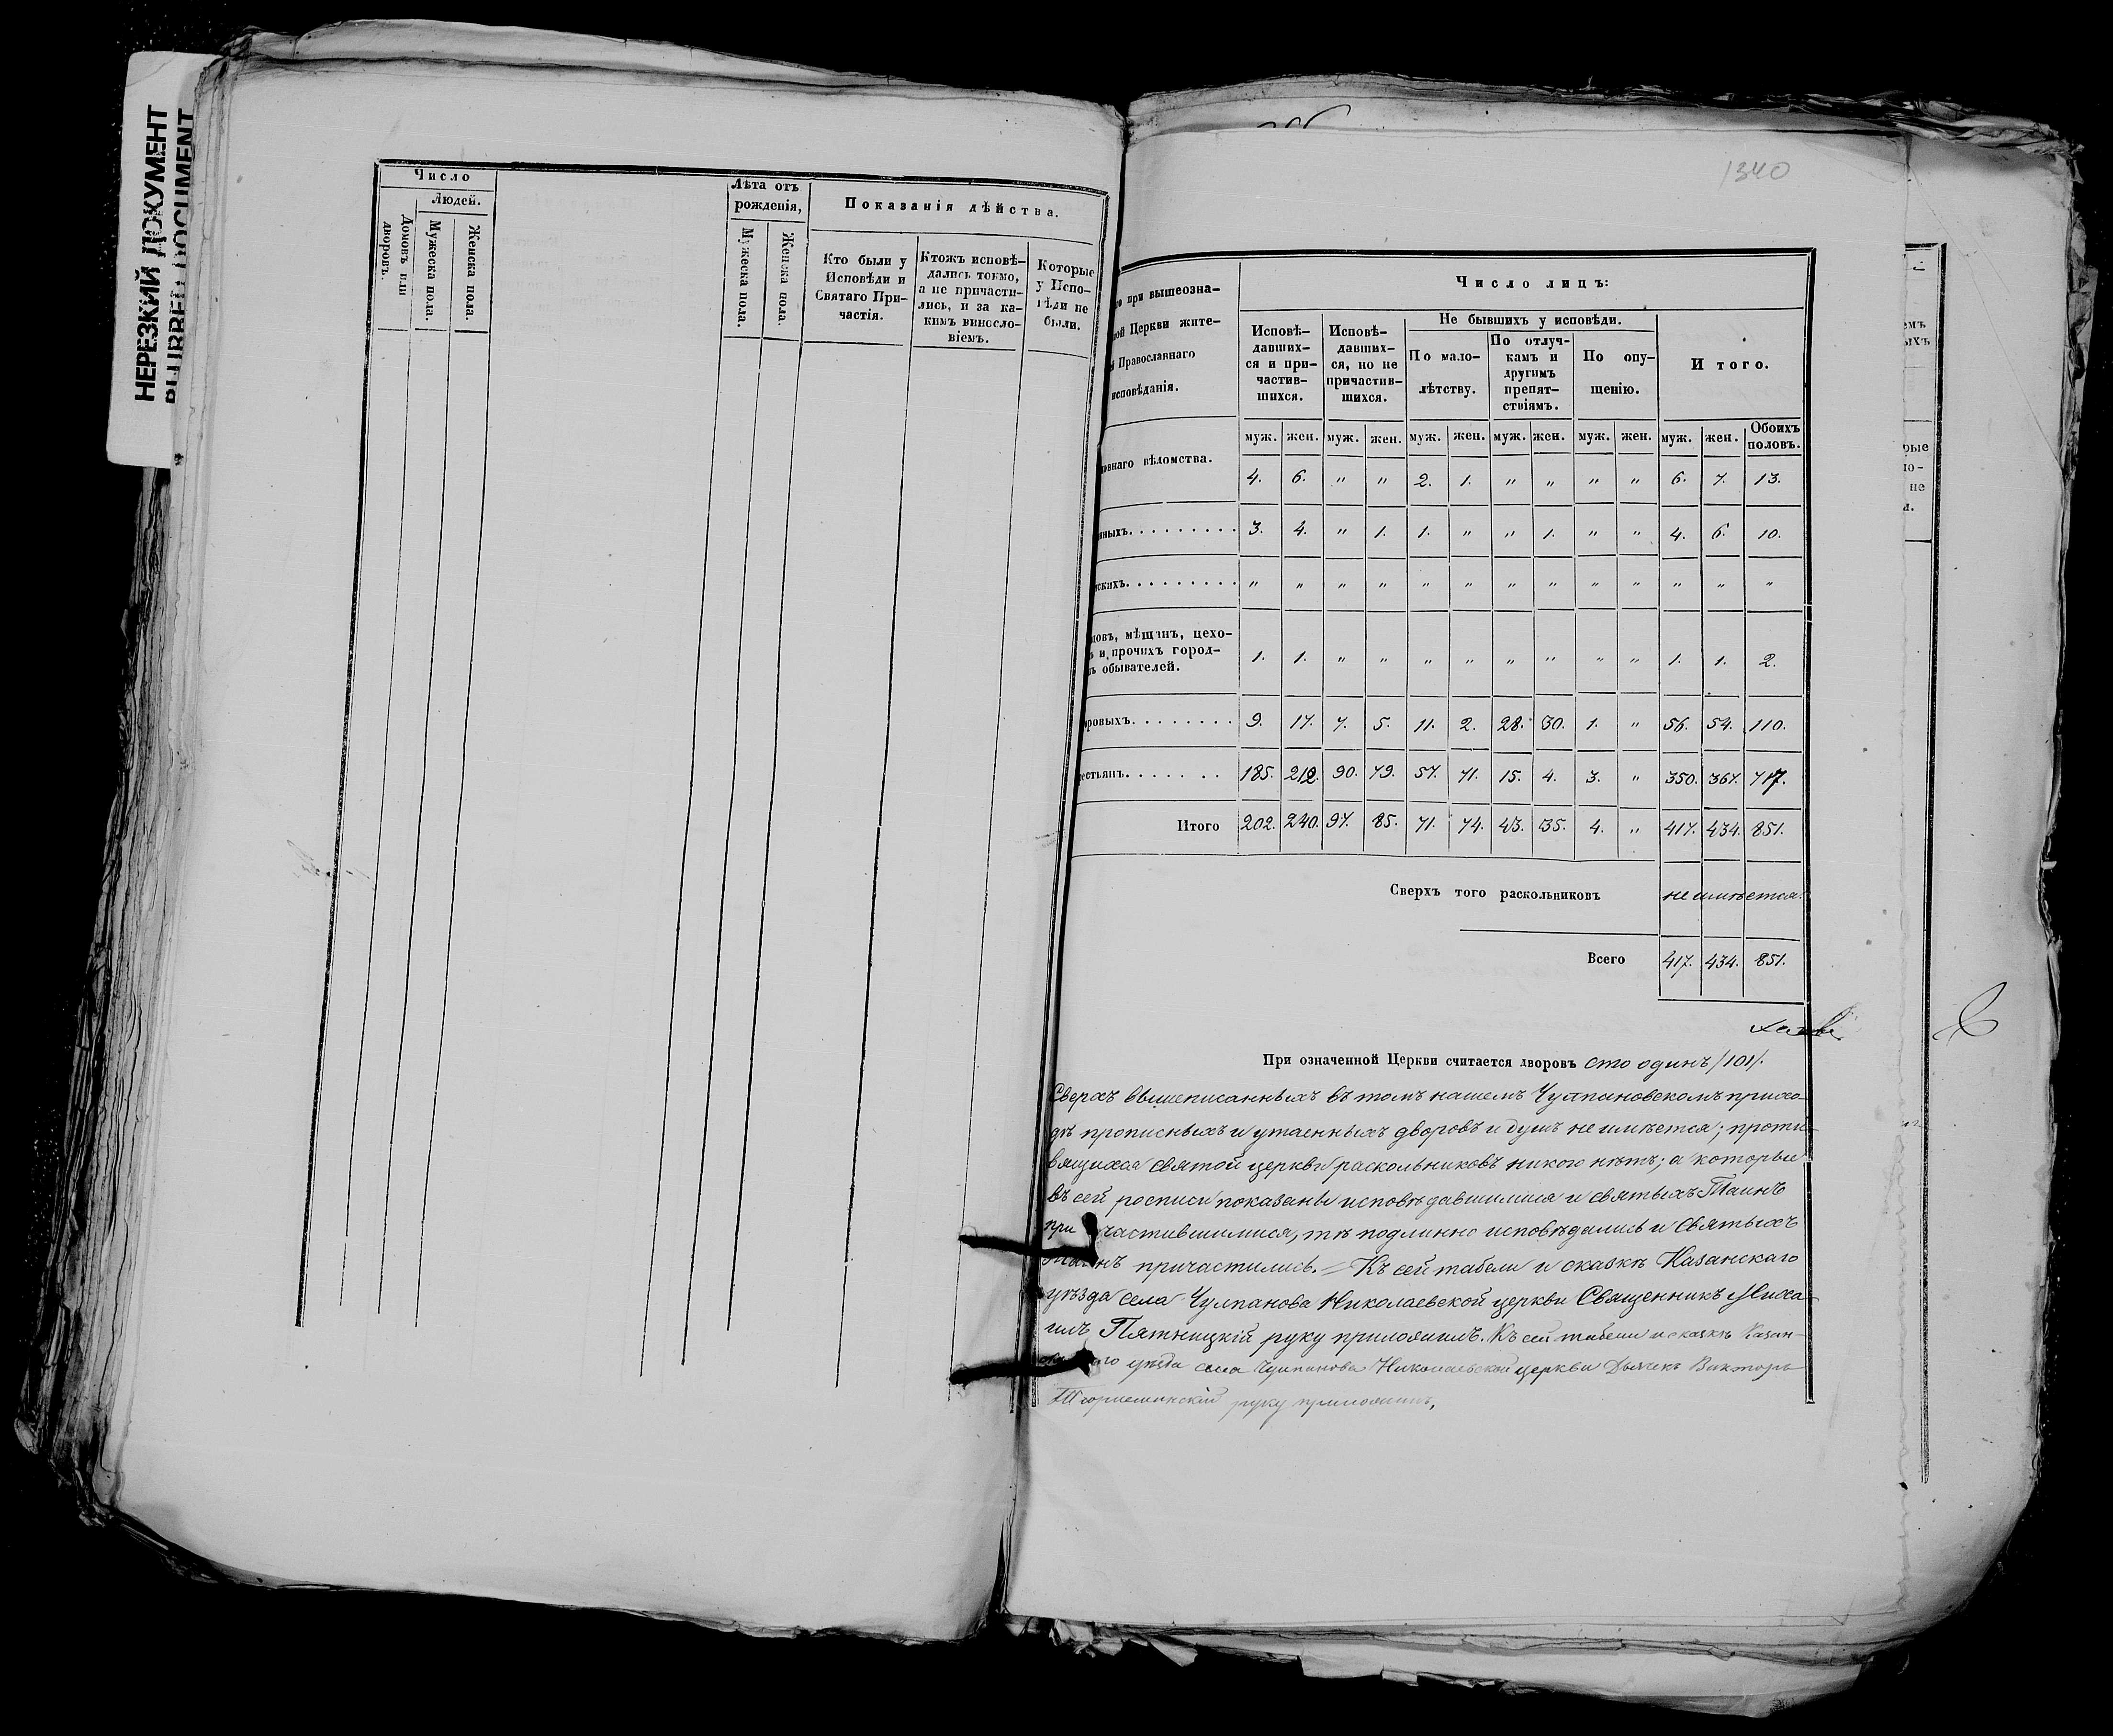 НЕРЕЗКИЙ ДОКУМЕНТ
BLURRED DOCUMENT
Число
Людей.
Домовъ или дворовъ.
Мужеска пола.
Женска пола.
Лѣта отъ рожденія,
Мужеска пола.
Женска пола.
Показанія дѣйства.
Кто были у Исповѣди и Святаго Причастія.
Ктожъ исповѣдались токмо, а не причастились, и за какимъ винословіемъ.
Которые у Исповѣди не были.
1340
при вышеозна-
ной Церкви жите-
Православнаго
исповѣданія.
Число лицъ:
Исповѣ-
давших-
ся и при-
частив-
шихся.
Исповѣ-
давших-
ся, но не
причастив-
шихся.
Не бывшихъ у исповѣди.
По мало-
лѣтству.
По отлуч-
камъ и
другимъ
препят-
ствіямъ.
По опу-
щенію.
Итого.
муж. жен. муж. жен. муж. жен. муж. жен. муж. жен. муж. жен. Обоихъ половъ.
овнаго вѣдомства. 4. 6. " " 2. 1. " " " " 6. 7. 13.
нныхъ. . . . . . . . . 3. 4. " 1. 1. " " 1. " " 4. 6. 10.
скихъ. . . . . . . . . " " " " " " " " " " " " "
цовъ, мѣщанъ, цехо-
ъ и прочихъ город-
ъ обывателей. 1. 1. " " " " " " " " 1. 1. 2.
ровыхъ. . . . . . . . 9. 17. 7. 5. 11. 2. 28. 30. 1. " 56. 54. 110.
естьянъ. . . . . . . 185. 212. 90. 79. 57. 71. 15. 4. 3. " 350. 367. 717.
Итого 202. 240. 97. 85. 71. 74. 43. 35. 4. " 417. 434. 851.
Сверхъ того раскольниковъ не имѣется.
Всего 417. 434. 851.
При означенной Церкви считается дворовъ сто одинъ /101/.
Сверхъ вышеписанныхъ въ томъ нашемъ Чулпановскомъ прихо-
дѣ прописныхъ и утаенныхъ дворовъ и душъ не имѣется; проти-
вящихся святой церкви раскольниковъ никого нѣтъ; а которые
въ сей росписи показаны исповѣдавшимися и святыхъ Таинъ
причастившимися, тѣ подлинно исповѣдались и Святыхъ
Таинъ причастились. = Къ сей табели и сказкѣ Казанскаго
уѣзда села Чулпанова Николаевской церкви Священникъ Миха-
илъ Пятницкій руку приложилъ. Къ сей табели и сказкѣ Казан-
скаго уѣзда села Чулпанова Николаевской церкви Дьячекъ Викторъ
руку приложилъ,